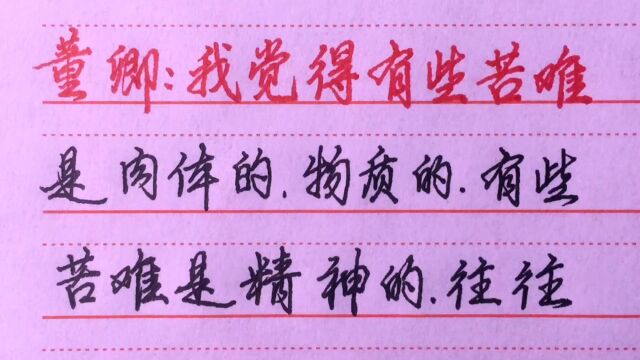 董卿:我觉得有些苦难
是肉体的.物质的.有些
苦难是精神的.往往